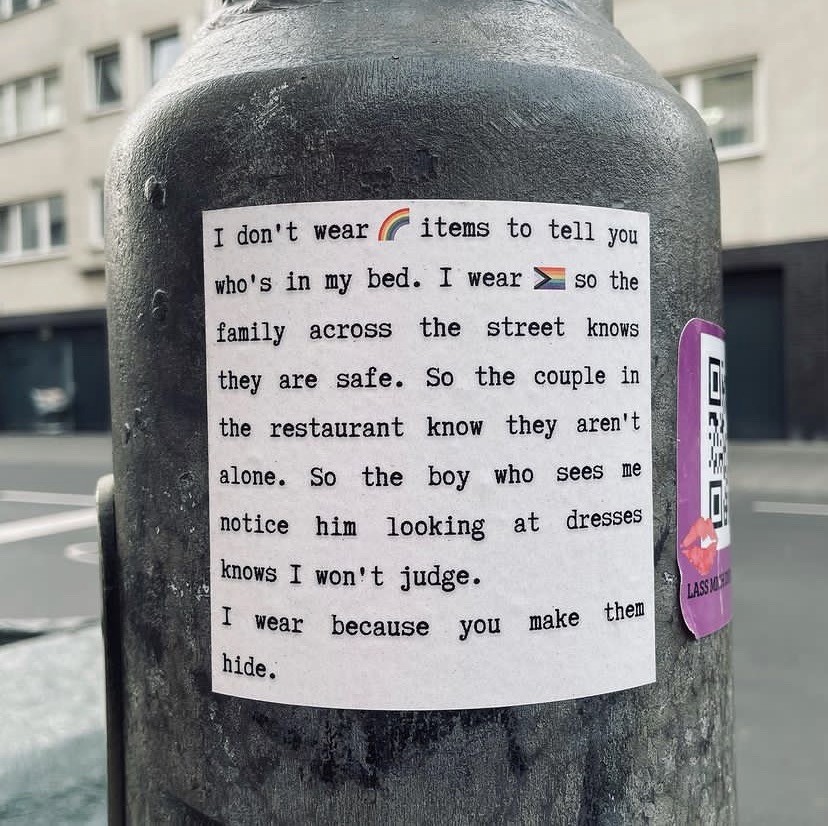 I don't wear 🌈 items to tell you
who's in my bed. I wear so the
family across the street knows
they are safe. So the couple in
the restaurant know they aren't
alone. So the boy who sees me
notice him looking at dresses
knows I won't judge.
I wear because you make them
hide.
LASS